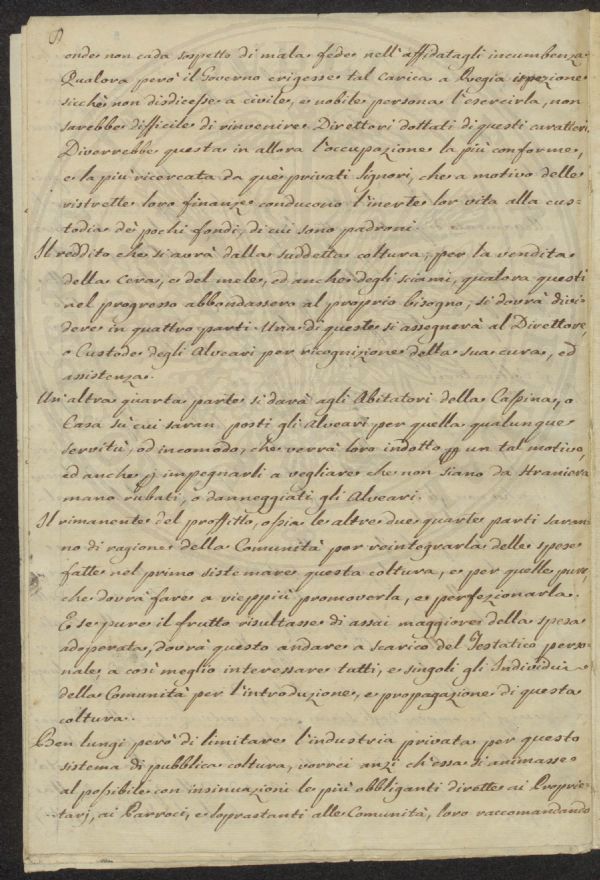 8
onde non cada sospetto di mala fede nell'affidatagli incumbenza.
Qualora però il Governo erigesse tal carica a Regia ispezione
sicchè non disdicesse a civile, e nobile persona l'esercirla, non
sarebbe difficile di rinvenire Direttori dottati di questi caratteri.
Diverrebbe questa in allora l'occupazione la più conforme,
e la più ricercata da què privati Signori, che a motivo delle
ristrette loro finanze conducono l'inerte lor vita alla cus=
todia dè pochi fondi, di cui sono padroni.
Il reddito che si avrà dalla suddetta coltura, per la vendita
della Cera, e del mele, ed anche degli sciami, qualora questi
nel progresso abbondassero al proprio bisogno, si dovrà divi
dere in quattro parti. Una di queste si assegnerà al Direttore,
o Custode degli Alveari per ricognizione della sua cura, ed
assistenza.
Un'altra quarta parte si darà agli Abitatori della Cassina, o
Casa sù cui saran posti gli Alveari per quella qualunque
servitù, od incomodo, che verrà loro indotto p un tal motivo,
ed anche p impegnarli a vegliare che non siano da straniera
mano rubati, o danneggiati gli Alveari.
Il rimanente del proffitto, ossia le altre due quarte parti saran
no di ragione della Comunità per reintegrarla delle spese
fatte nel primo sistemare questa coltura, e per quelle pure,
che dovrà fare a vieppiù promoverla, e perfezionarla.
E se pure il frutto risultasse di assai maggiore della spesa
adoperata, dovrà questo andare a scarico del Testatico perso=
nale, a così meglio interessare tutti, e singoli gli Individui
della Comunità per l'introduzione, e propagazione di questa
coltura.
Ben lungi però di limitare l'industria privata per questo
sistema di pubblica coltura, vorrei anzi ch'essa si animasse
al possibile con insinuazioni le più obbliganti dirette ai Proprie
tarj, ai Parroci, e soprastanti alle Comunità, loro raccomandando